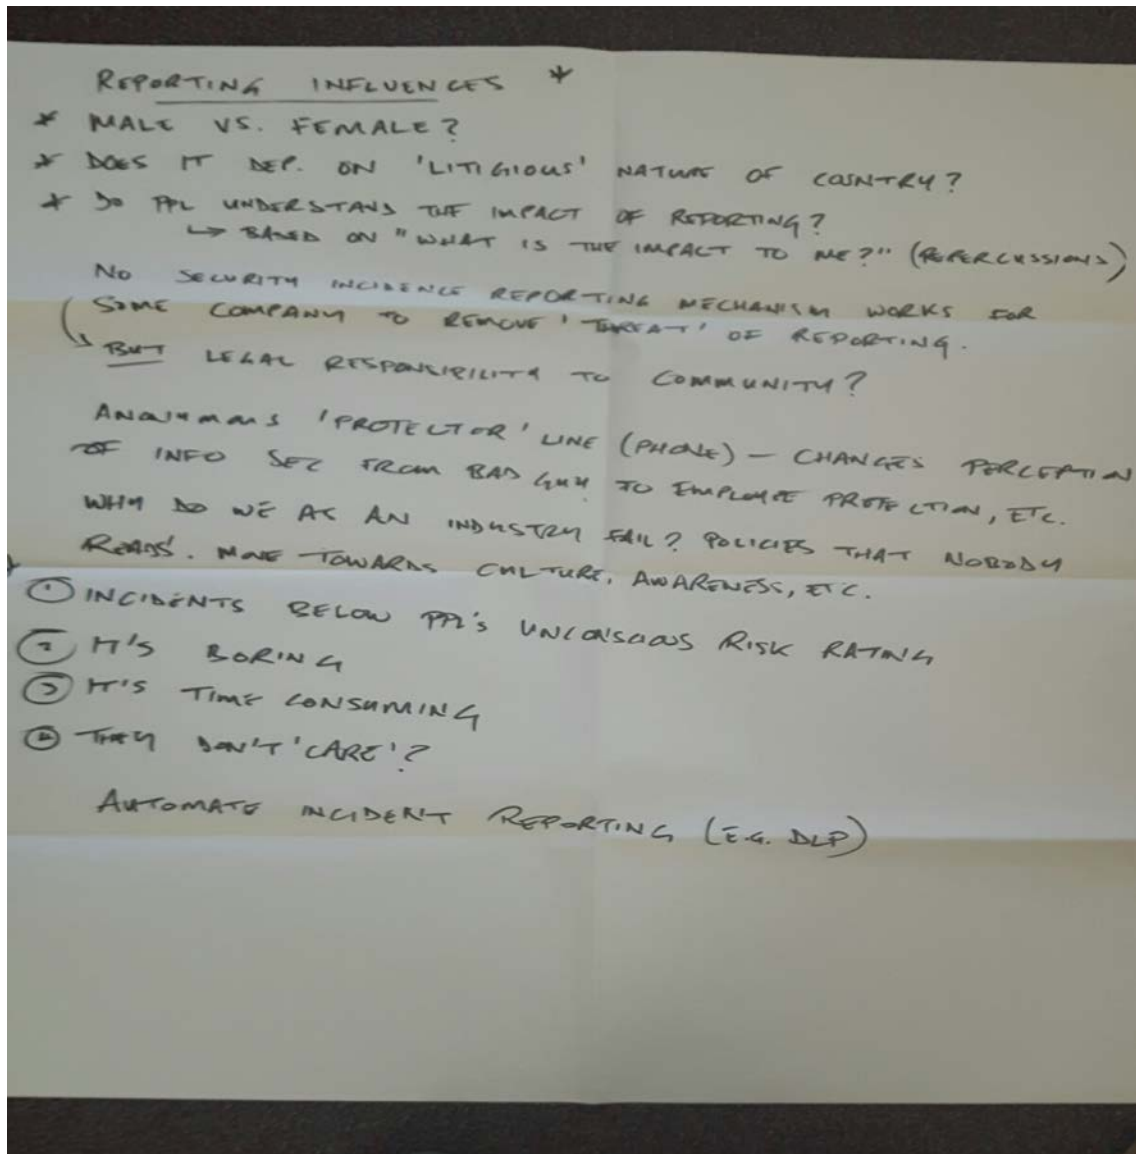 REPORTING INFLUENCES *
* MALE VS. FEMALE?
* DOES IT DEP. ON 'LITIGIOUS' NATURE OF COUNTRY?
* DO PPL UNDERSTAND THE IMPACT OF REPORTING?
↳ BASED ON "WHAT IS THE IMPACT TO ME?" (REPERCUSSIONS)
NO SECURITY INCIDENCE REPORTING MECHANISM WORKS FOR
SOME COMPANY TO REMOVE 'THREAT' OF REPORTING.
↳ BUT LEGAL RESPONSIBILITY TO COMMUNITY?
ANONYMOUS 'PROTECTOR' LINE (PHONE) - CHANGES PERCEPTION
OF INFO SEC FROM BAD GUY TO EMPLOYEE PROTECTION, ETC.
WHY DO WE AS AN INDUSTRY FAIL? POLICIES THAT NOBODY
READS. MOVE TOWARDS CULTURE, AWARENESS, ETC.
① INCIDENTS BELOW PPL'S UNCONSCIOUS RISK RATING
② IT'S BORING
③ IT'S TIME CONSUMING
④ THEY DON'T 'CARE'?
AUTOMATE INCIDENT REPORTING (E.G. DLP)